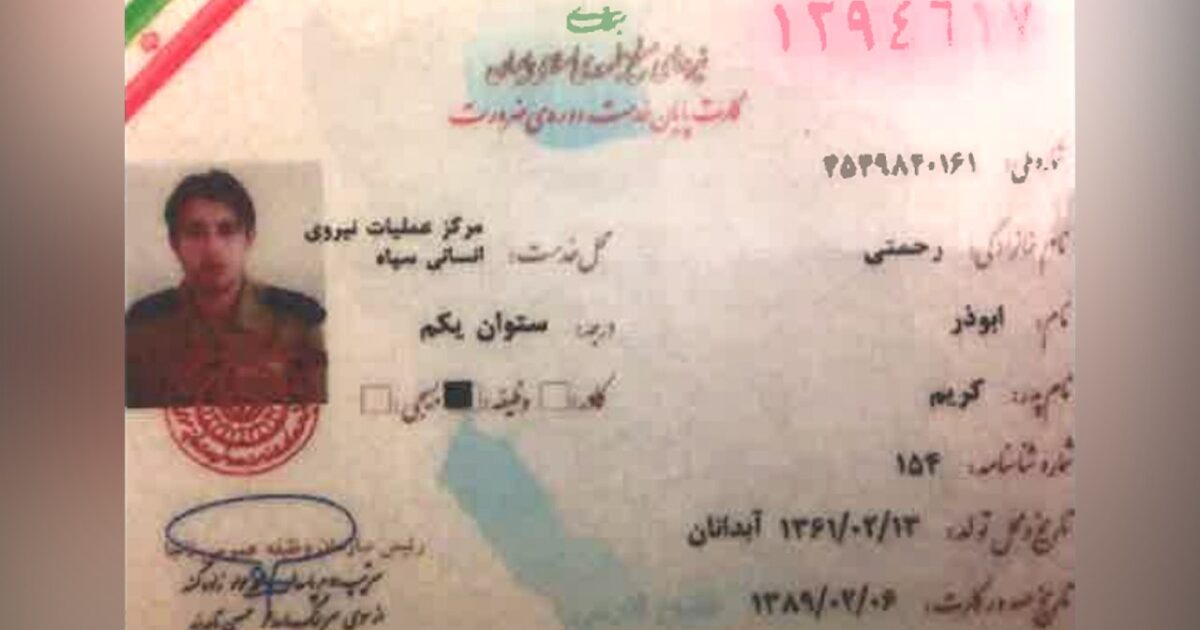 ۱۲۹٤٦۱۷
نیروهای مسلح جمهوری اسلامی ایران
کارت پایان خدمت دوره‌ی ضرورت
شماره ملی: ۴۵۲۹۸۲۰۱۶۱
نام خانوادگی: رحمتی
محل خدمت: مرکز عملیات نیروی
انسانی سپاه
نام: ابوذر
درجه: ستوان یکم
نام پدر: کریم
کادر: وظیفه: بسیجی:
شماره شناسنامه: ۱۵۴
تاریخ و محل تولد: ۱۳۶۱/۰۲/۱۳ آبدانان
تاریخ صدور کارت: ۱۳۸۹/۰۲/۰۶
رئیس سازمان وظیفه عمومی